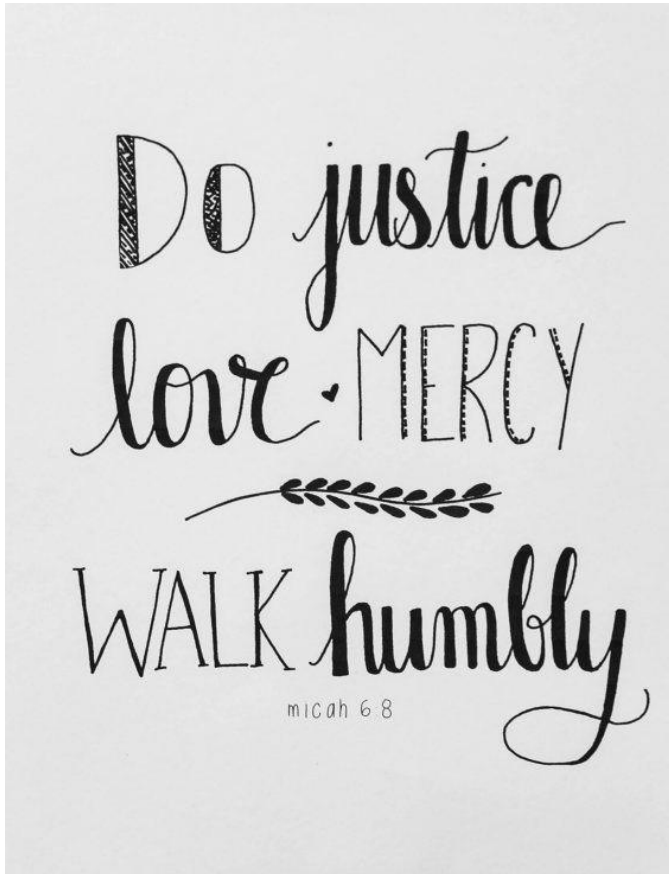 Do justice
love MERCY
WALK humbly
micah 6 8